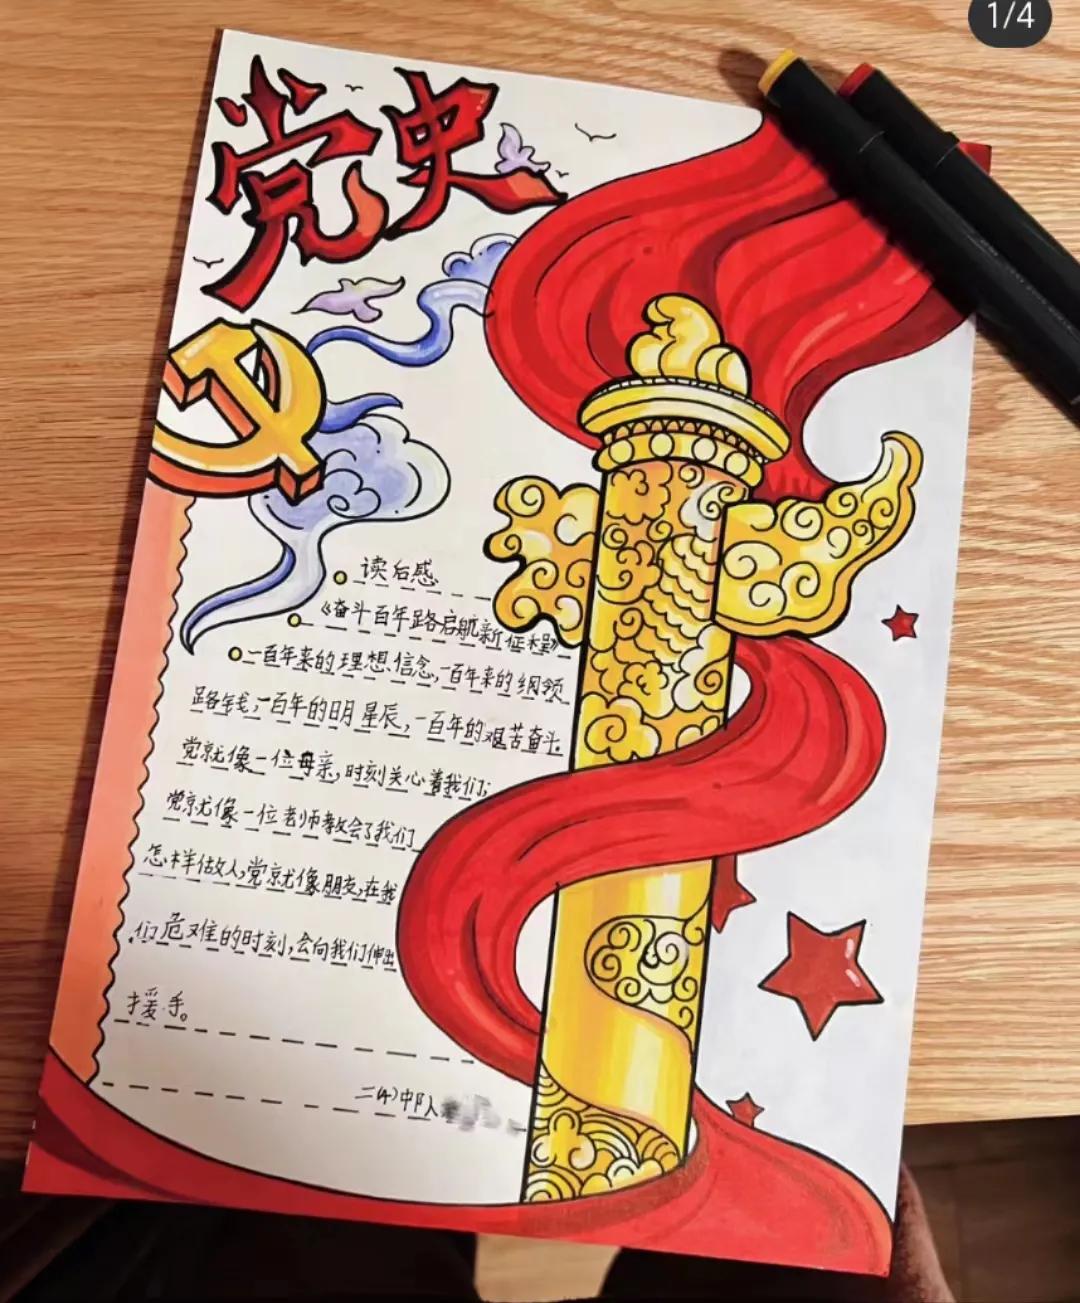 1/4
党史
读后感
《奋斗百年路启航新征程》
一百年来的理想信念,一百年来的纲领
路线,一百年的日月星辰,一百年的艰苦奋斗.
党就像一位母亲,时刻关心着我们;
党就像一位老师教会了我们
怎样做人,党就像朋友,在我
们危难的时刻,会向我们伸出
援手。
二(4)中队